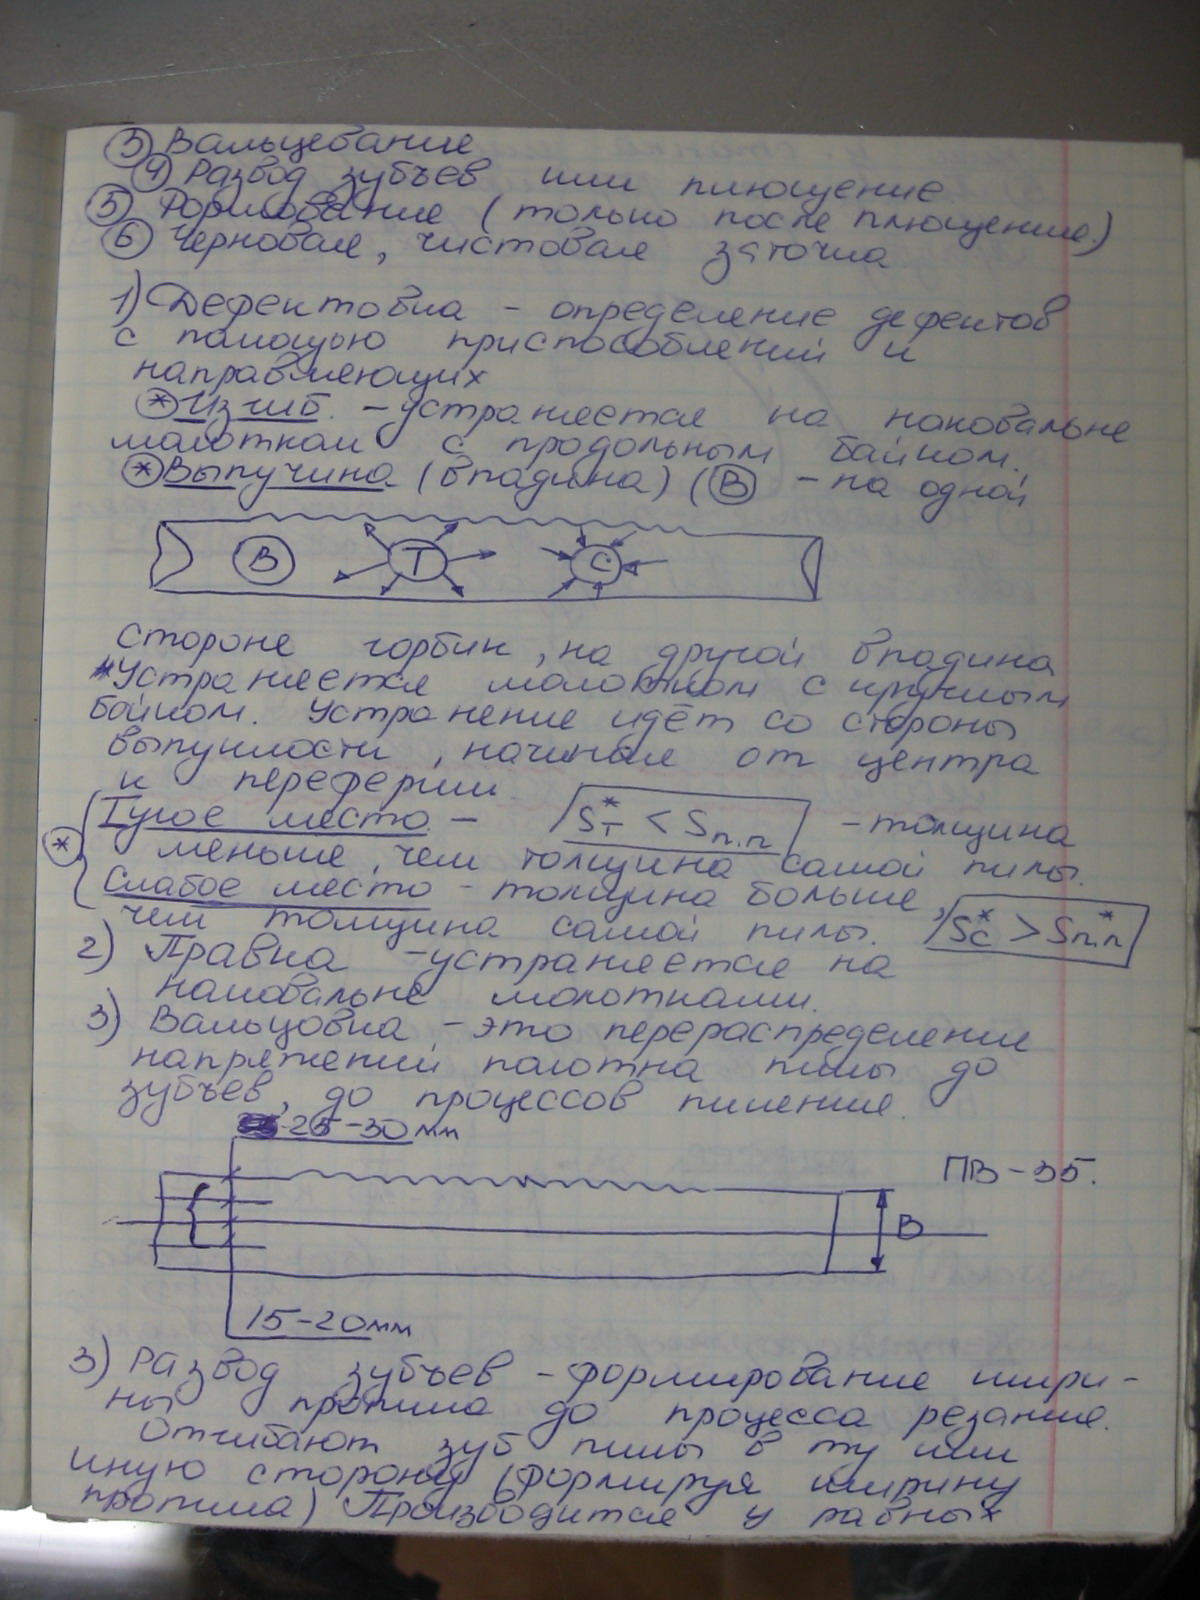 ③ Вальцевание
④ Развод зубъев или плющение
⑤ Формование (только после плющения)
⑥ Черновая, чистовая заточка
1) Дефектовка - определение дефектов
с помощью приспособлений и
направляющих
* Изгиб. - устраняется на наковальне
молотком с продольным байком.
* Выпучина (впадина) (В) - на одной
В Т С
стороне горбик, на другой впадина
* Устраняется молотком с круглым
байком. Устранение идёт со стороны
выпуклости, начиная от центра
к переферии
Тугое место - Sт* < Sп.п - толщина
* меньше, чем толщина самой пилы.
Слабое место - толщина больше,
чем толщина самой пилы. Sс* > Sп.п*
2) Правка - устраняется на
наковальне молотками.
3) Вальцовка - это перераспределение
напряжений полотна пилы до
зубъев, до процессов пиления.
25-30 мм
ПВ-35.
В
15-20 мм
3) Развод зубъев - формирование шири-
ны пропила до процесса резания.
Отгибают зуб пилы в ту или
иную сторону (формируя ширину
пропила) Производится у рабных